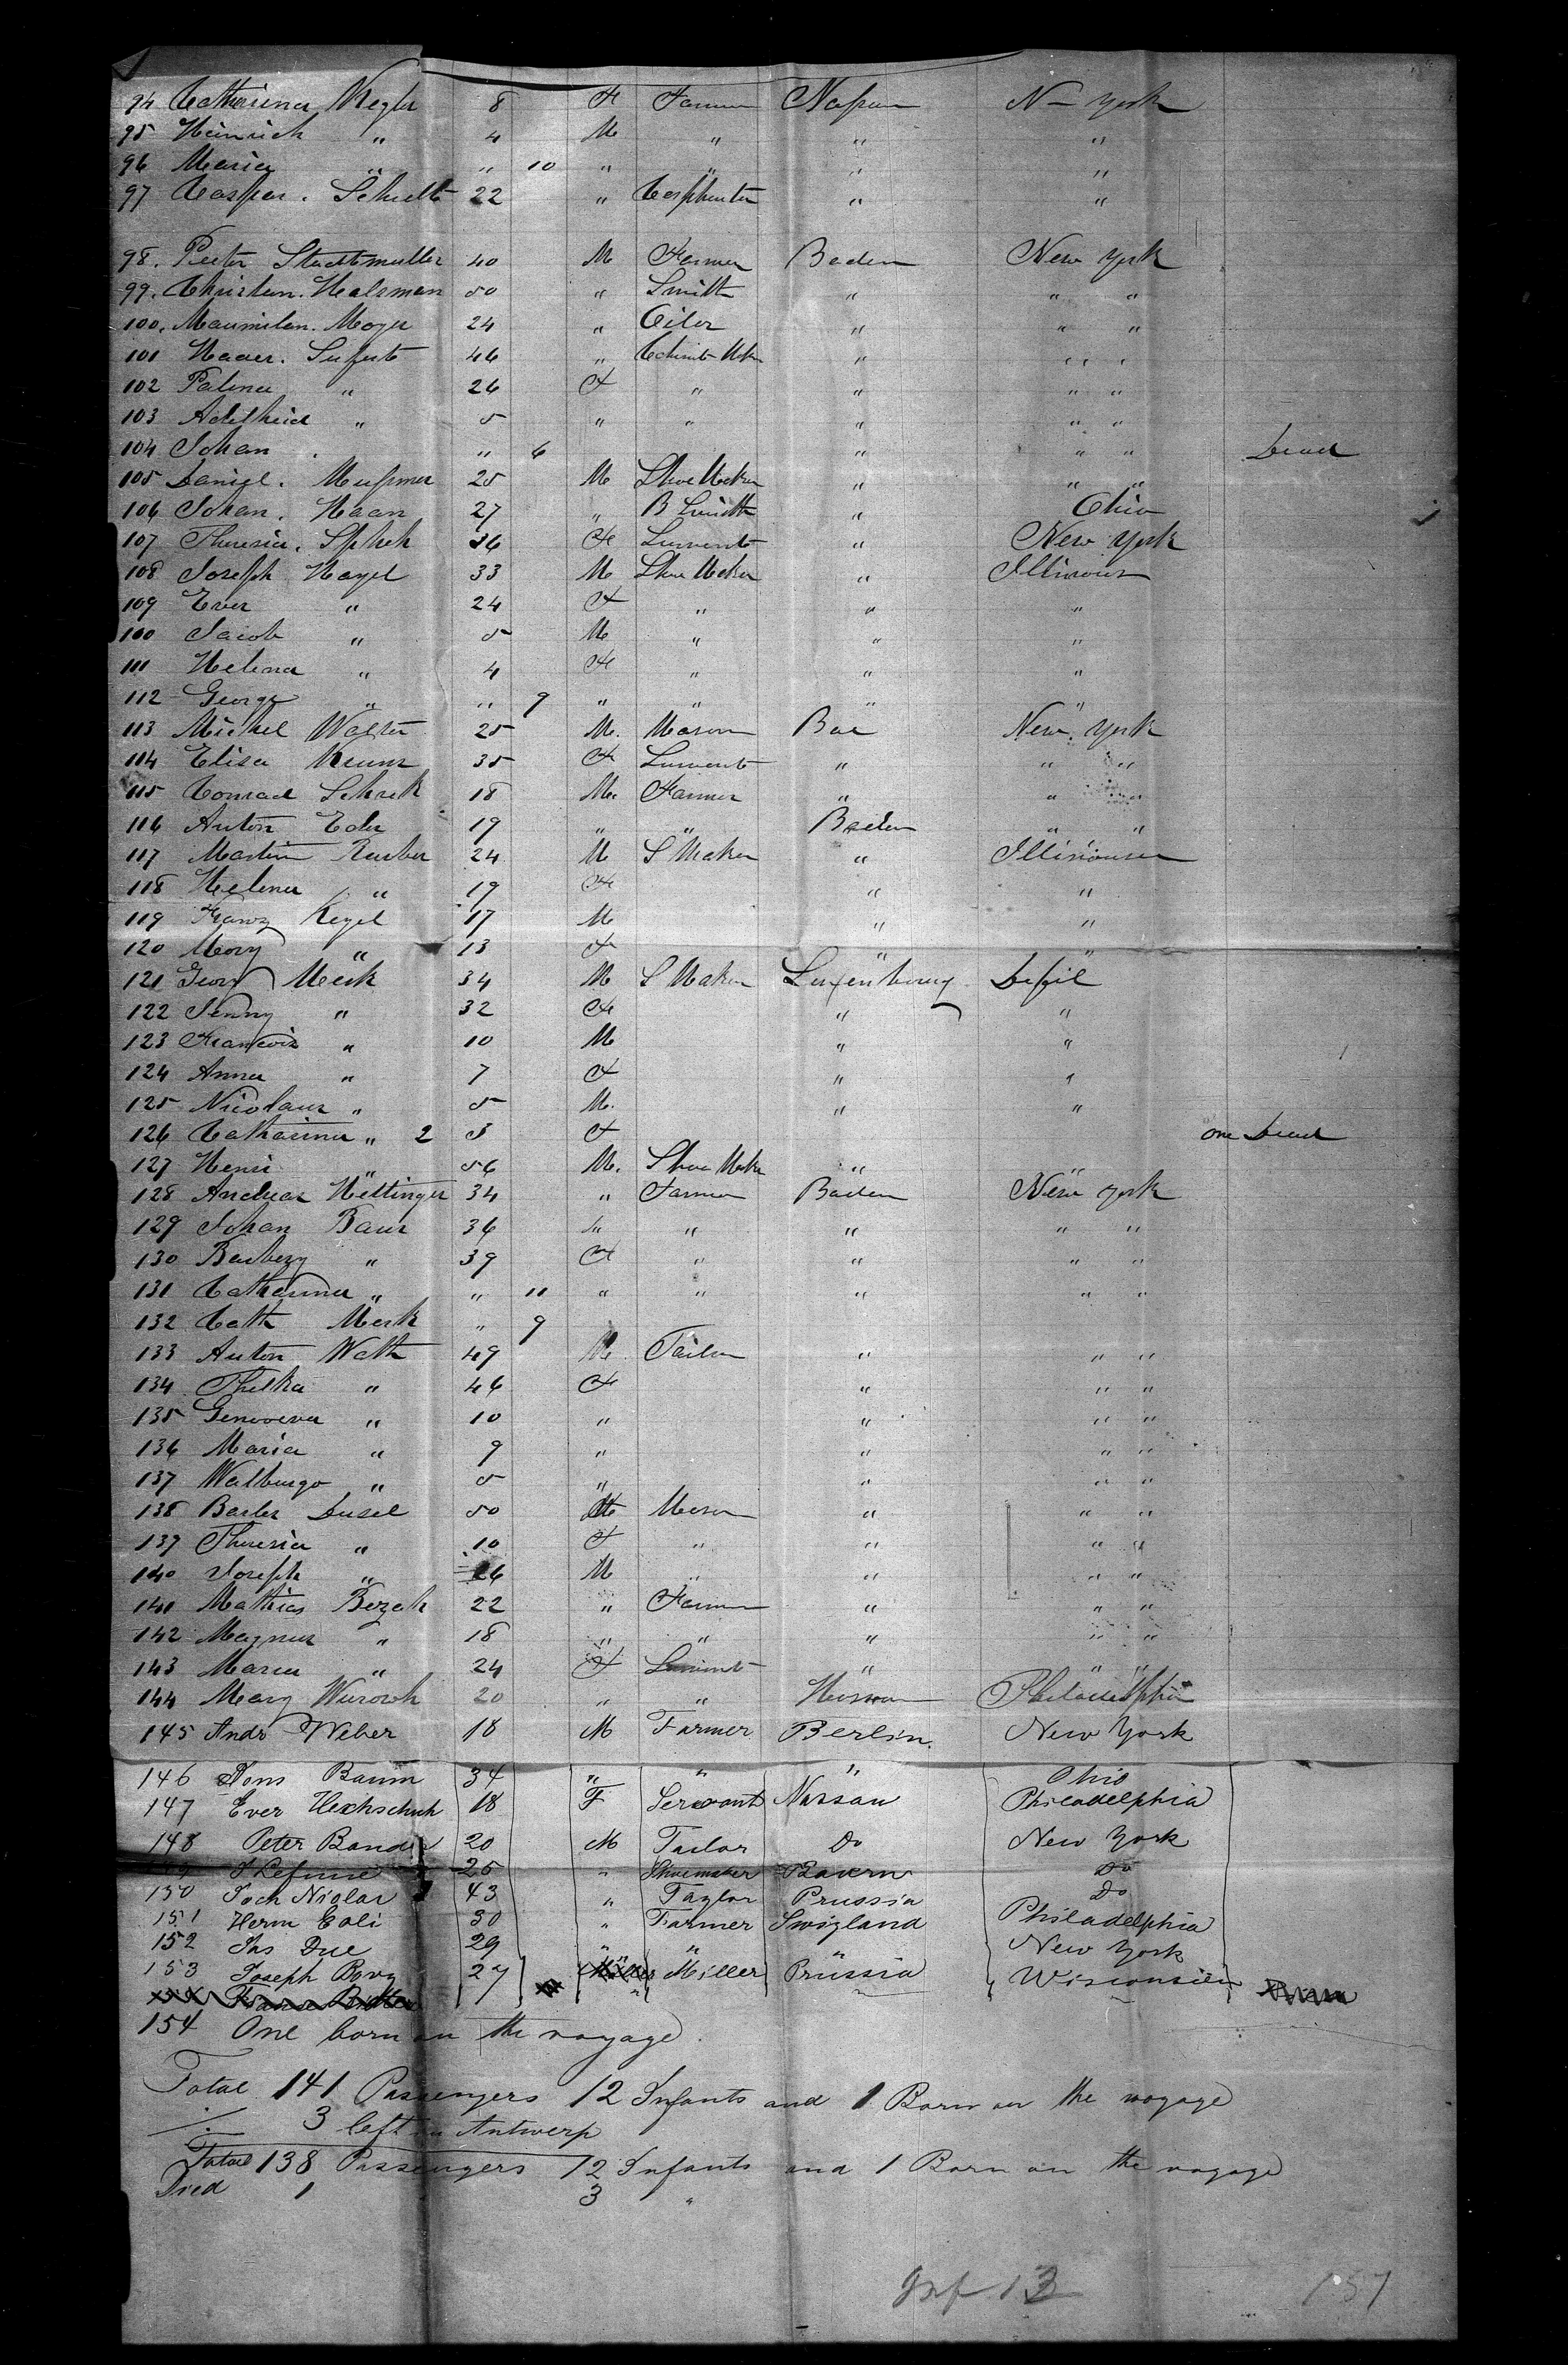 94 Catharina Kegler 8 F Farmer Nassau N- York
95 Heinrich " 4 M " " "
96 Maria " " 10 " " " "
97 Caspar. Schultz 22 " Carphenter " "
98. Peeter Stadtmuller 40 M Farmer Baden New York
99. Christian. Halsman 50 " Smith " " "
100. Maximilan. Moyer 24 " " " "
101 46 " " " "
102 " 26 F " " " "
103 Adelheid " 5 " " " " "
104 Johan " 6 " " " Dead
105 Daniel. 25 M Shoe Maker " " "
106 Johan. Haan 27 " B Smith " Ohio
107 Theresia. 36 F Servant " New York
108 Joseph Nagel 33 M Shoe Maker " Illinois
109 Ever " 24 F " " "
100 Jacob " 5 M " " "
111 Helena " 4 F " " "
112 George " " 9 " " " "
113 Michel Walter 25 M. Mason Bad New York
114 Elisa 35 F Servant " " "
115 Conrad Schick 18 M. Farmer " " "
116 Anton Eder 19 " " Baden " "
117 Martin 24 M S Maker "
118 Helena " 19 F " "
119 Franz Kegel 17 M " "
120 Mary " 13 F " "
121 Georg Merk 34 M S Maker Luxenbourg
122 Jenny " 32 F " "
123 Francois " 10 M " "
124 Anna " 7 F " "
125 Nicolaus " 5 M. " "
126 Catharina " 2 3 F one Dead
127 Henri " 56 M. Shoe Maker " "
128 Andreas Hettinger 34 " Farmer Baden New York
129 Johan Baur 36 " " " " "
130 39 F " " " "
131 Catharina " " 11 " " " " "
132 Cath Merk " 9
133 Anton Wath 49 M Tailor " " "
134 Thelka " 46 F " " "
135 Genoveva " 10 " " " "
136 Maria " 9 " " " "
137 Walburga " 5 " " " "
138 Dusel 50 M Mason " " "
139 Theresia " 10 F " " " "
140 Joseph " 26 M " " " "
141 Mathias 22 " Farmer " " "
142 Magnus " 18 " " " " "
143 Maria " 24 F Servant " " "
144 Mary 20 " " Philadelphia
145 Andr Weber 18 M Farmer Berlin. New York
146 Baum 34 " " " Ohio
147 Ever Hechschuh 18 F Servant Nassau Philadelphia
148 Peter Bander 20 M Tailor Do New York
149 25 " Shoemaker Bavern Do
150 Joch Niolar 43 " Taylor Prussia Do
151 Herm Eali 30 " Farmer Swizland Philadelphia
152 Jas Due 29 " " " New York
153 Joseph Bovy 27 Miller Prussia Wisconsien
154 One born on the voyage
Total 141 Passengers 12 Infants and 1 Born on the voyage
3 left in Antwerp
Total 138 Passengers 12 Infants and 1 Born on the voyage
Died 1 3 "
Inf 13 157